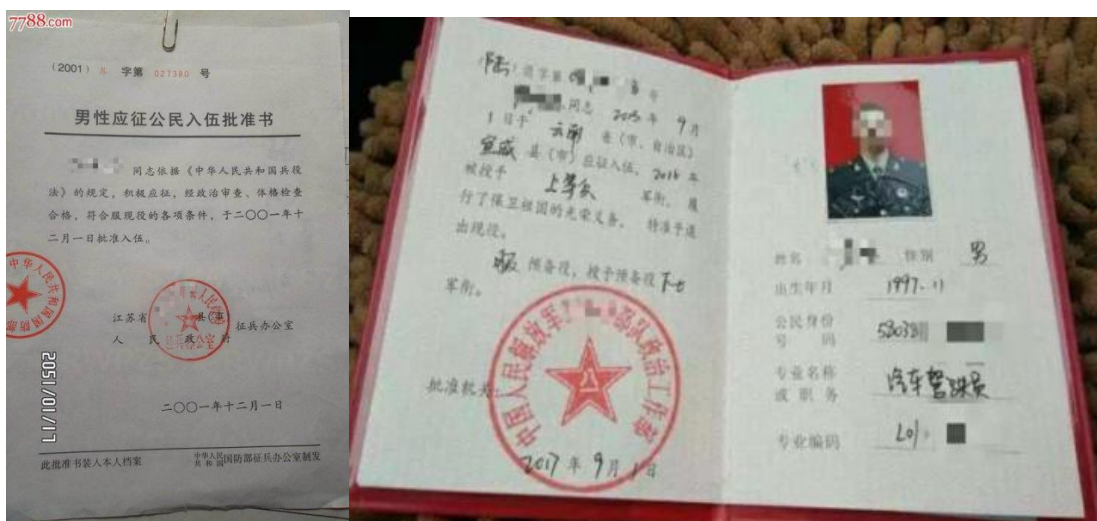 7788.com
(2001) 苏 字第 027380 号
男性应征公民入伍批准书
同志依据《中华人民共和国兵役
法》的规定，积极应征，经政治审查、体格检查
合格，符合服现役的各项条件，于二〇〇一年十
二月一日批准入伍。
中华人民共和国国防部
江苏省 县(市) 征兵办公室
人民政府
征兵办公室
二〇〇一年十二月一日
此批准书装入本人档案 中华人民共和国国防部征兵办公室制发
2051/01/17
(陆) 退字第 号
同志 2015 年 9 月
1 日于 云南 省(市、自治区)
宣威 县(市) 应征入伍，2016 年
被授予 上等兵 军衔，履
行了保卫祖国的光荣义务，特准予退
出现役。
服 预备役，授予预备役 下士
军衔。
批准机关：
中国人民解放军 部队政治工作部
2017 年 9 月 1 日
姓名 性别 男
出生年月 1997.11
公民身份
号码 53038
专业名称 汽车驾驶员
或职务
专业编码